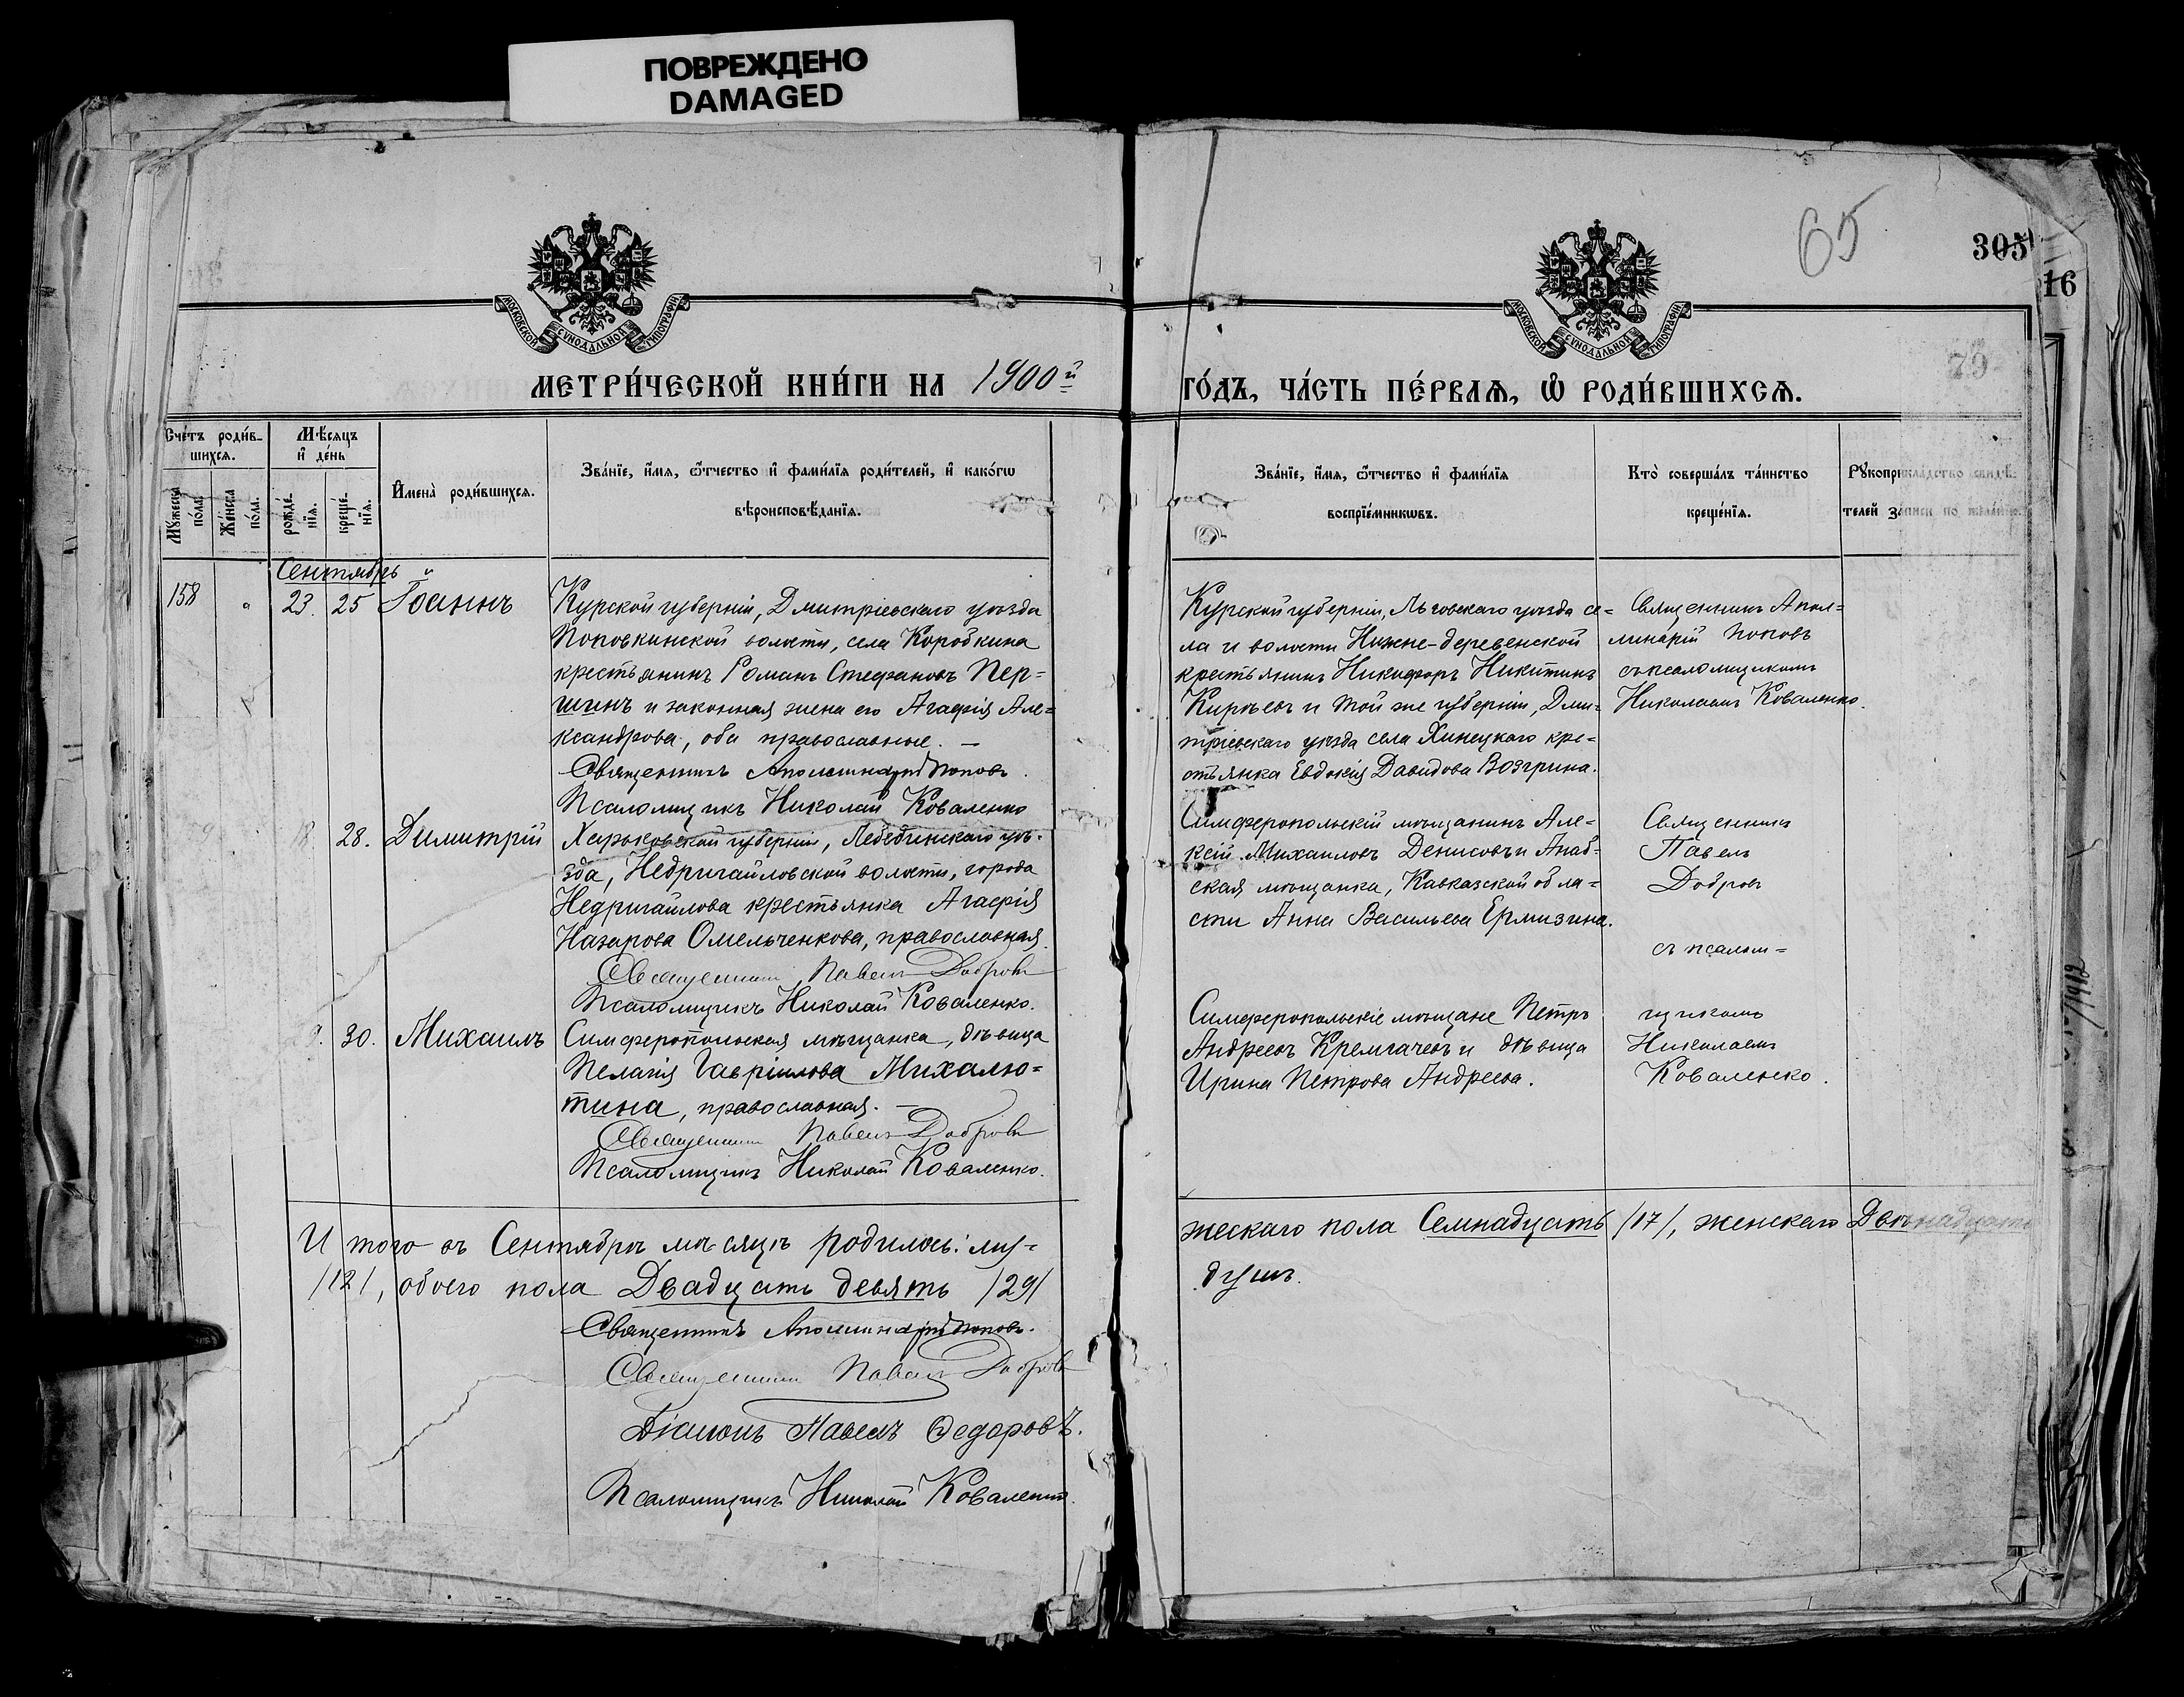 ПОВРЕЖДЕНО
DAMAGED
65
305
16
79
МОСКОВСКОЙ СѴНОДАЛЬНОЙ ТИПОГРАФІИ
МОСКОВСКОЙ СѴНОДАЛЬНОЙ ТИПОГРАФІИ
МЕТРИ́ЧЕСКОЙ КНИ́ГИ НА 1900й
ГО́ДЪ, ЧА́СТЬ ПЕ́РВАѦ, Ѿ РОДИ́ВШИХСѦ.
Сче́тъ роди́в-
шихся.
Мѣ́сяцъ
и҆ де́нь
Мꙋ́жеска по́ла.
Же́нска по́ла.
рожде́-
нїѧ.
креще́-
нїѧ.
И҆мена̀ роди́вшихсѧ.
Зва́нїе, и҆́мѧ, ѻ҆́тчество и҆ фами́лїѧ роди́телей, и҆ како́гѡ
вѣроисповѣ́данїѧ.
Зва́нїе, и҆́мѧ, ѻ҆́тчество и҆ фами́лїѧ
воспрїе́мникѡвъ.
Кто̀ соверша́лъ та́инство
креще́нїѧ.
Рꙋкоприкла́дство свидѣ́-
телей за́писи по жела́нїю.
Сентябрь
158 " 23. 25 Іоаннъ
Курской губерніи, Дмитріевскаго уѣзда
Поповкинской волости, села Коробкина
крестьянинъ Романъ Стефановъ Пер=
шинъ и законная жена его Агафія Але=
ксандрова, оба православные. —
Священникъ Аполлинарій Поповъ.
Псаломщикъ Николай Коваленко
Курской губерніи, Льговскаго уѣзда се=
ла и волости Нижне-деревенской
крестьянинъ Никифоръ Никитинъ
Кирѣевъ и той же губерніи, Дми-
тріевскаго уѣзда села Хинецкаго кре=
стьянка Евдокія Давидова Возгрина.
Священникъ Апол=
линарій Поповъ
съ псаломщикомъ
Николаемъ Коваленко.
28. Димитрій
Харьковской губерніи, Лебединскаго уѣ-
зда, Недригайловской волости, города
Недригайлова крестьянка Агафія
Назарова Омельченкова, православная.
Священникъ Павелъ Добровъ
Псаломщикъ Николай Коваленко.
Симферопольскій мѣщанинъ Але-
ксій Михаиловъ Денисовъ и Анап-
ская мѣщанка, Кавказской обла=
сти Анна Васильева Ермизина.
Священникъ
Павелъ
Добровъ
съ псалом=
30. Михаилъ
Симферопольская мѣщанка, дѣвица
Пелагія Гавріилова Михалю=
тина, православная. —
Священникъ Павелъ Добровъ
Псаломщикъ Николай Коваленко.
Симферопольскіе мѣщане Петръ
Андреевъ Кремгачевъ и дѣвица
Ирина Петрова Андреева.
щикомъ
Николаемъ
Коваленко.
И того въ Сентябрѣ мѣсяцѣ родилось: му-
жескаго пола Семнадцать /17/, женскаго Двѣнадцать
/12/, обоего пола Двадцать девять /29/
душъ.
Священникъ Аполлинарій Поповъ.
Священникъ Павелъ Добровъ
Діаконъ Павелъ Федоровъ.
Псаломщикъ Николай Коваленко.